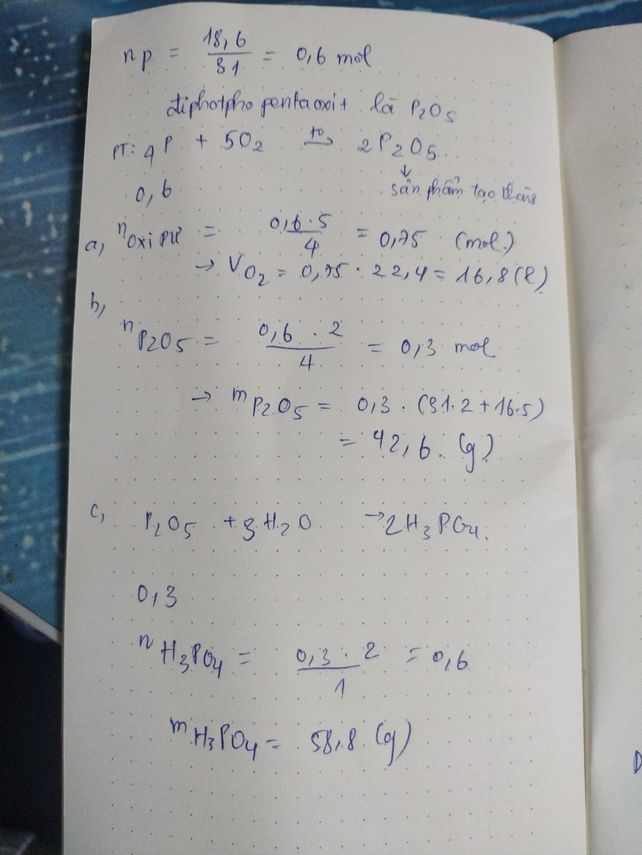 nP = 18,6 / 31 = 0,6 mol
điphotpho pentaoxit là P2O5
PT: 4P + 5O2 →(t°) 2P2O5
0,6 ↓ sản phẩm tạo thành
a, noxi PƯ = 0,6·5 / 4 = 0,75 (mol)
→ VO2 = 0,75 · 22,4 = 16,8 (l)
b,
nP2O5 = 0,6 · 2 / 4 = 0,3 mol
→ mP2O5 = 0,3 · (31·2 + 16·5)
= 42,6 (g)
c, P2O5 + 3H2O → 2H3PO4.
0,3
nH3PO4 = 0,3 · 2 / 1 = 0,6
mH3PO4 = 58,8 (g)
D